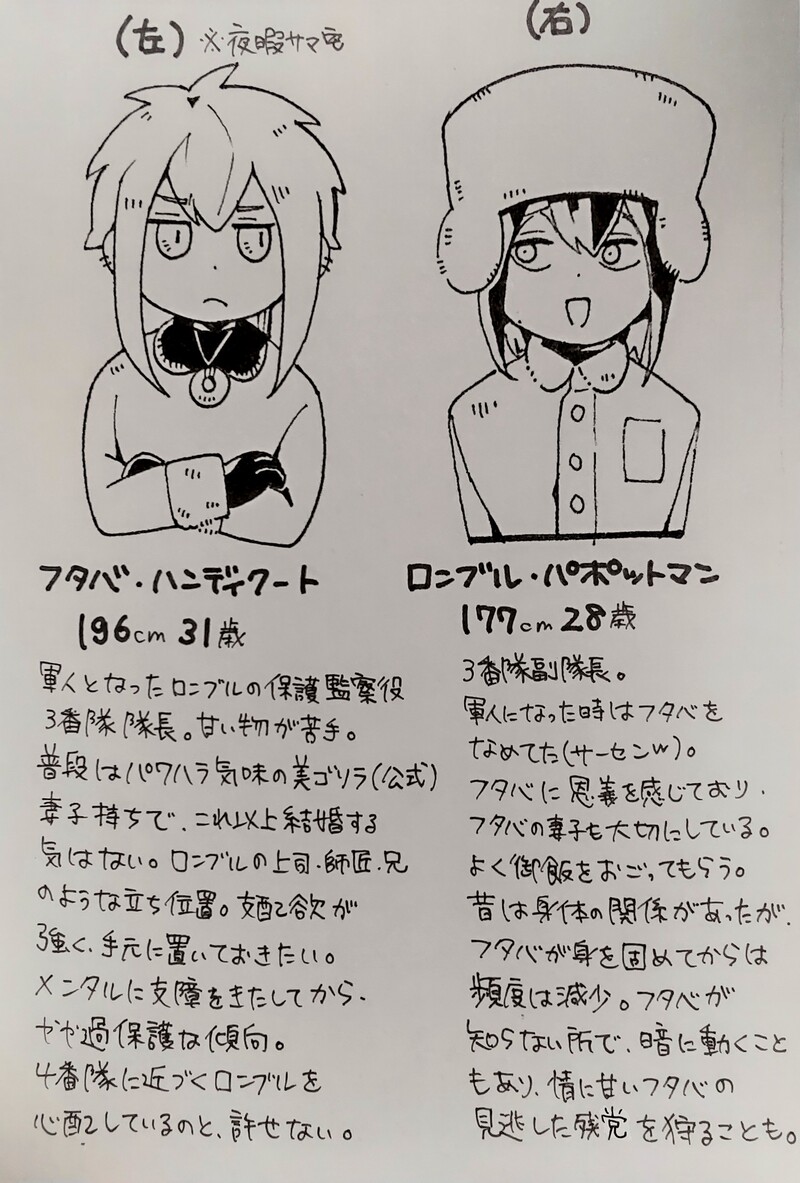 (左) ※夜暇サマ宅
フタバ・ハンディクート
196cm 31歳
軍人となったロンブルの保護監察役
3番隊隊長。甘い物が苦手。
普段はパワハラ気味の美ゴリラ(公式)
妻子持ちで、これ以上結婚する
気はない。ロンブルの上司・師匠・兄
のような立ち位置。支配欲が
強く、手元に置いておきたい。
メンタルに支障をきたしてから、
やや過保護な傾向。
4番隊に近づくロンブルを
心配しているのと、許せない。
(右)
ロンブル・パポポットマン
177cm 28歳
3番隊副隊長。
軍人になった時はフタバを
なめてた(サーセンw)。
フタバに恩義を感じており、
フタバの妻子も大切にしている。
よく御飯をおごってもらう。
昔は身体の関係があったが、
フタバが身を固めてからは
頻度は減少。フタバが
知らない所で、暗に動くこと
もあり、情に甘いフタバの
見逃した残党を狩ることも。